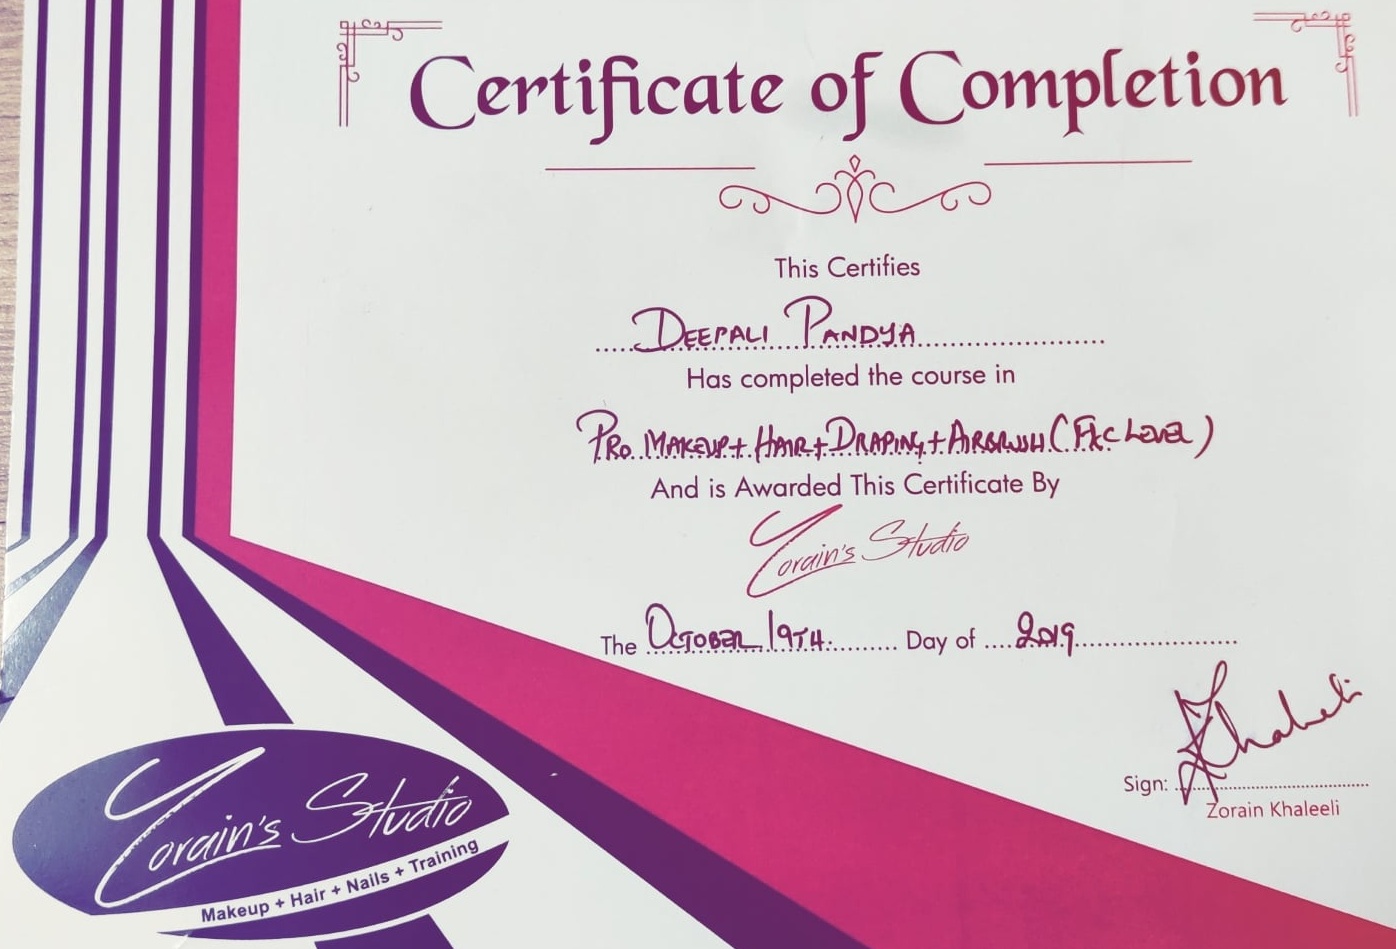 Certificate of Completion
This Certifies
DEEPALI PANDYA
Has completed the course in
PRO MAKEUP + HAIR + DRAPING + AIRBRUSH ( LEVEL )
And is Awarded This Certificate By
Zorain's Studio
The OCTOBER 19TH Day of 2019
Sign: ZKhaleeli
Zorain Khaleeli
Zorain's Studio
Makeup + Hair + Nails + Training